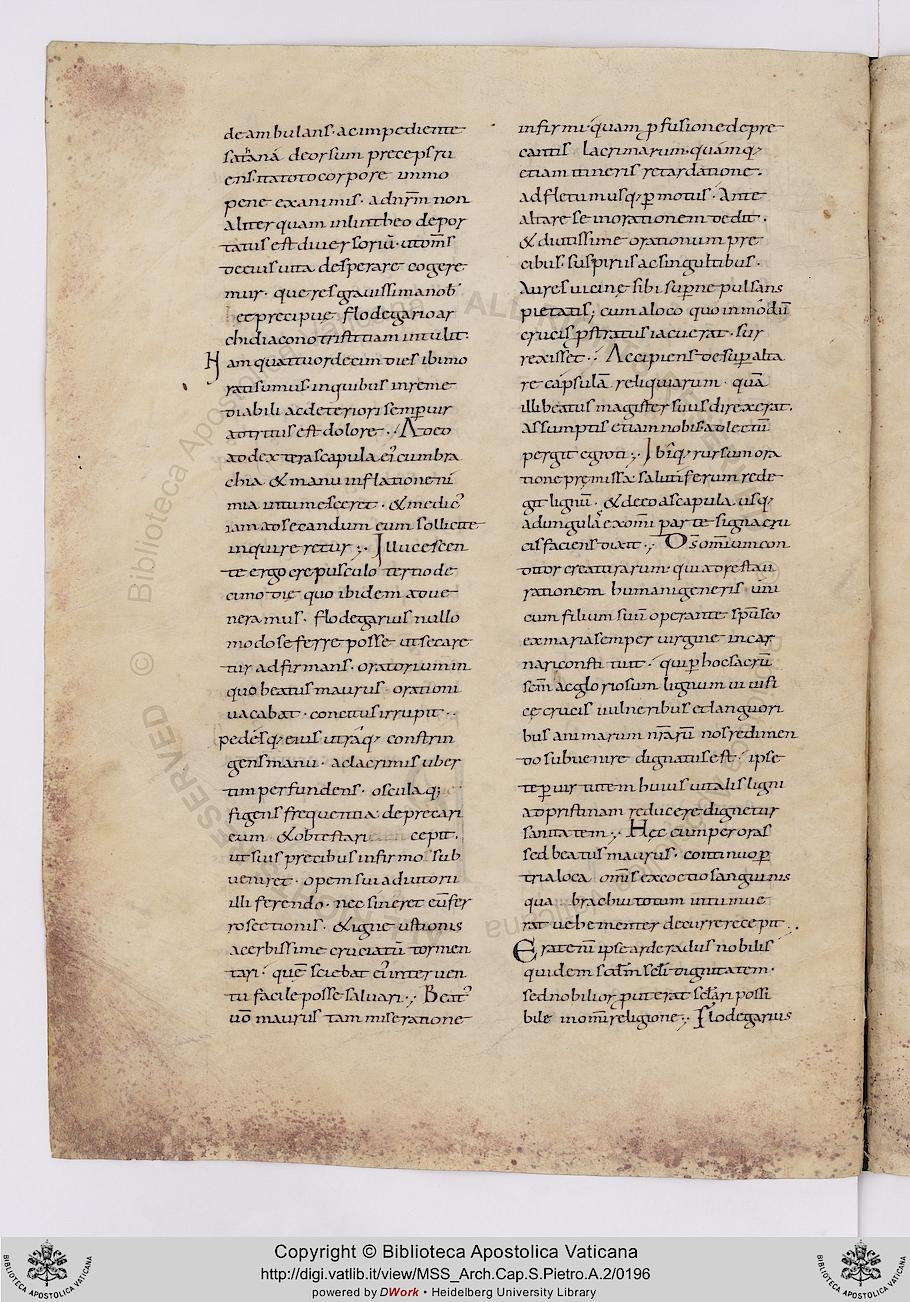 deambulans. ac impediente
satana deorsum preceps ru
ens. ita toto corpore immo
pene exanimis. ad nr̄m non
aliter quam in lintheo depor
tatus est diuersoriū. ut om̄s
de eius uita desperare cogere
mur. que res grauissima nob᾽
et precipue flodegario ar
chidiacono tristitiam intulit.
Nam quattuordecim dies ibi mo
rati sumus. in quibus in reme
diabili ac deteriori semp̱ uir
adtritus est dolore. Adeo
ad dextera scapula ei᾽ cum bra
chia & manu inflatione ni
mia intumesceret. & medic᾽
iam ad secandum eum sollicite
inquireretur. Illucescen
te ergo crepusculo tertio de
cimo die quo ibidem adue
neramus. flodegarius nullo
modo se ferre posse ut secare
tur adfirmans. oratorium in
quo beatus maurus. orationi
uacabat. concitus irrupit.
pedesq; eius utraq; constrin
gens manu. ac lacrimis uber
tim perfundens. oscula q;
figens frequentia deprecari
eum & obtestari cepit.
ut suis precibus infirmo sub
ueniret. opem sui adiutorii
illi ferendo. nec sineret eū fer
ro sectionis. & igne ustionis
acerbissime cruciatū tormen
tari. quē sciebat ei᾽ interuen
tu facile posse saluari. Beat᾽
uō maurus tam miseratione
infirmi. quam p̱fusione depre
cantis lacrimarum. quamq;
etiam itineris retardatione.
ad fletum usq; p̱motus. Ante
altare se in orationem dedit.
& diutissime orationum pre
cibus. suspiriis ac singultibus.
Aures uicinę sibi sup̱ne pulsans
pietatis; cum a loco quo in modū
crucis p̱stratus iacuerat. sur
rexisset. Accipiens de sup̱ alta
re capsulā reliquiarum. quā
illi beatus magister suus direxerat.
assumptis etiam nobis. ad lectū
pergit egroti. Ibiq; rursum ora
tione pręmissa salutiferum rede
git lignū. & de eo a scapula usq;
ad ungulas ex omī parte signa cru
cis faciens dixit. Ds̄ omīum con
ditor creaturarum. qui ad restau
rationem humani generis uni
cum filium suū operante sp̄u sc̄o
ex maria semper uirgine incar
nari constituit. qui p̱ hoc sacrū
sc̄m ac gloriosum lignum uiuifi
cę crucis uulneribus et languori
bus animarum nr̄arū nos redimen
do subuenire dignatus est. ipse
te p̱ uirtutem huius uitalis ligni
ad pristinam reducere dignetur
sanitatem. Hęc cum peroras
sed beatus maurus. continuo p̱
tria loca om̄is excoctio sanguinis
qua brachiū totum intumue
rat uehementer decurrere cepit.
Erat eni᾽ ipse arderadus nobilis
quidem scd̄m sc̄li dignitatem.
sed nobilior p̱ut erat scl̄ari possi
bile in omī religione. Flodegarius